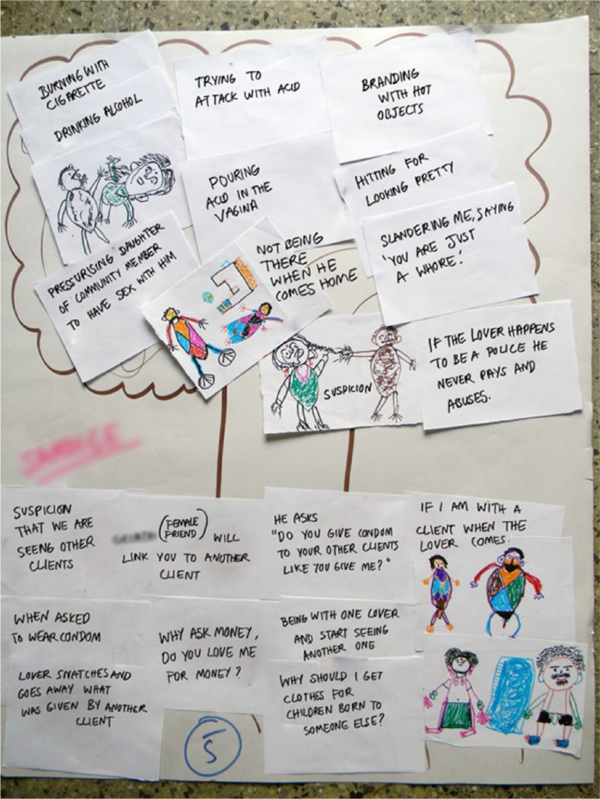 BURNING WITH
CIGARETTE
DRINKING ALCOHOL
TRYING TO
ATTACK WITH ACID
BRANDING
WITH HOT
OBJECTS
POURING
ACID IN THE
VAGINA
HITTING FOR
LOOKING PRETTY
PRESSURISING DAUGHTER
OF COMMUNITY MEMBER
TO HAVE SEX WITH HIM
NOT BEING
THERE
WHEN HE
COMES HOME
SLANDERING ME, SAYING
'YOU ARE JUST
A WHORE'.
SUSPICION
IF THE LOVER HAPPENS
TO BE A POLICE HE
NEVER PAYS AND
ABUSES.
SUSPICION
THAT WE ARE
SEENG OTHER
CLIENTS
(FEMALE
FRIEND) WILL
LINK YOU TO ANOTHER
CLIENT
HE ASKS
"DO YOU GIVE CONDOM
TO YOUR OTHER CLIENTS
LIKE YOU GIVE ME?"
IF I AM WITH A
CLIENT WHEN THE
LOVER COMES.
WHEN ASKED
TO WEAR CONDOM
WHY ASK MONEY,
DO YOU LOVE ME
FOR MONEY?
BEING WITH ONE LOVER
AND START SEEING
ANOTHER ONE
LOVER SNATCHES AND
GOES AWAY WHAT
WAS GIVEN BY ANOTHER
CLIENT
WHY SHOULD I GET
CLOTHES FOR
CHILDREN BORN TO
SOMEONE ELSE?
5